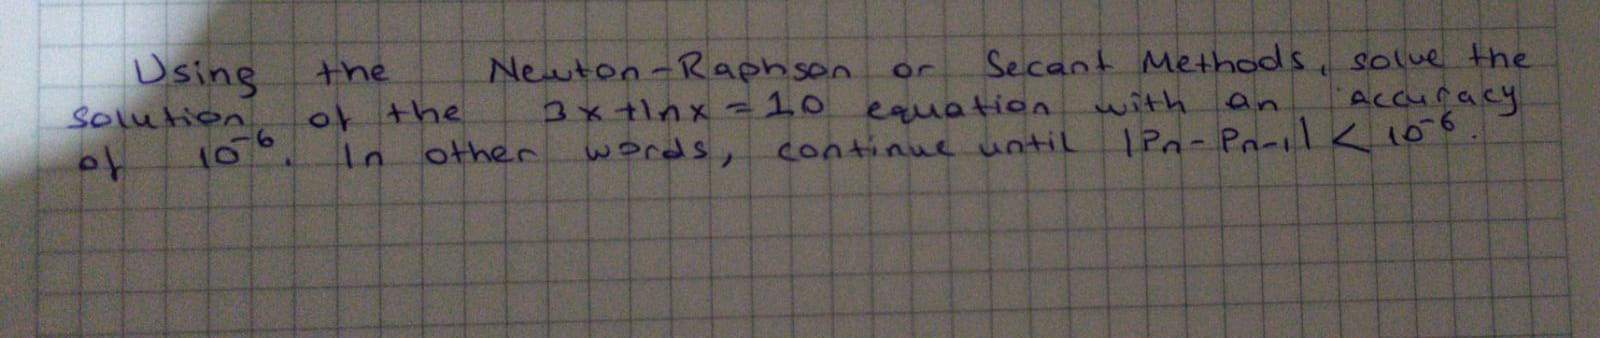 Using the Newton-Raphson or Secant Methods, solve the
solution of the 3x+lnx=10 equation with an accuracy
of 10⁻⁶. In other words, continue until |Pn-Pn-1| < 10⁻⁶.